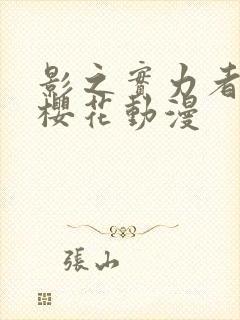 影之實力者
櫻花動漫
張山